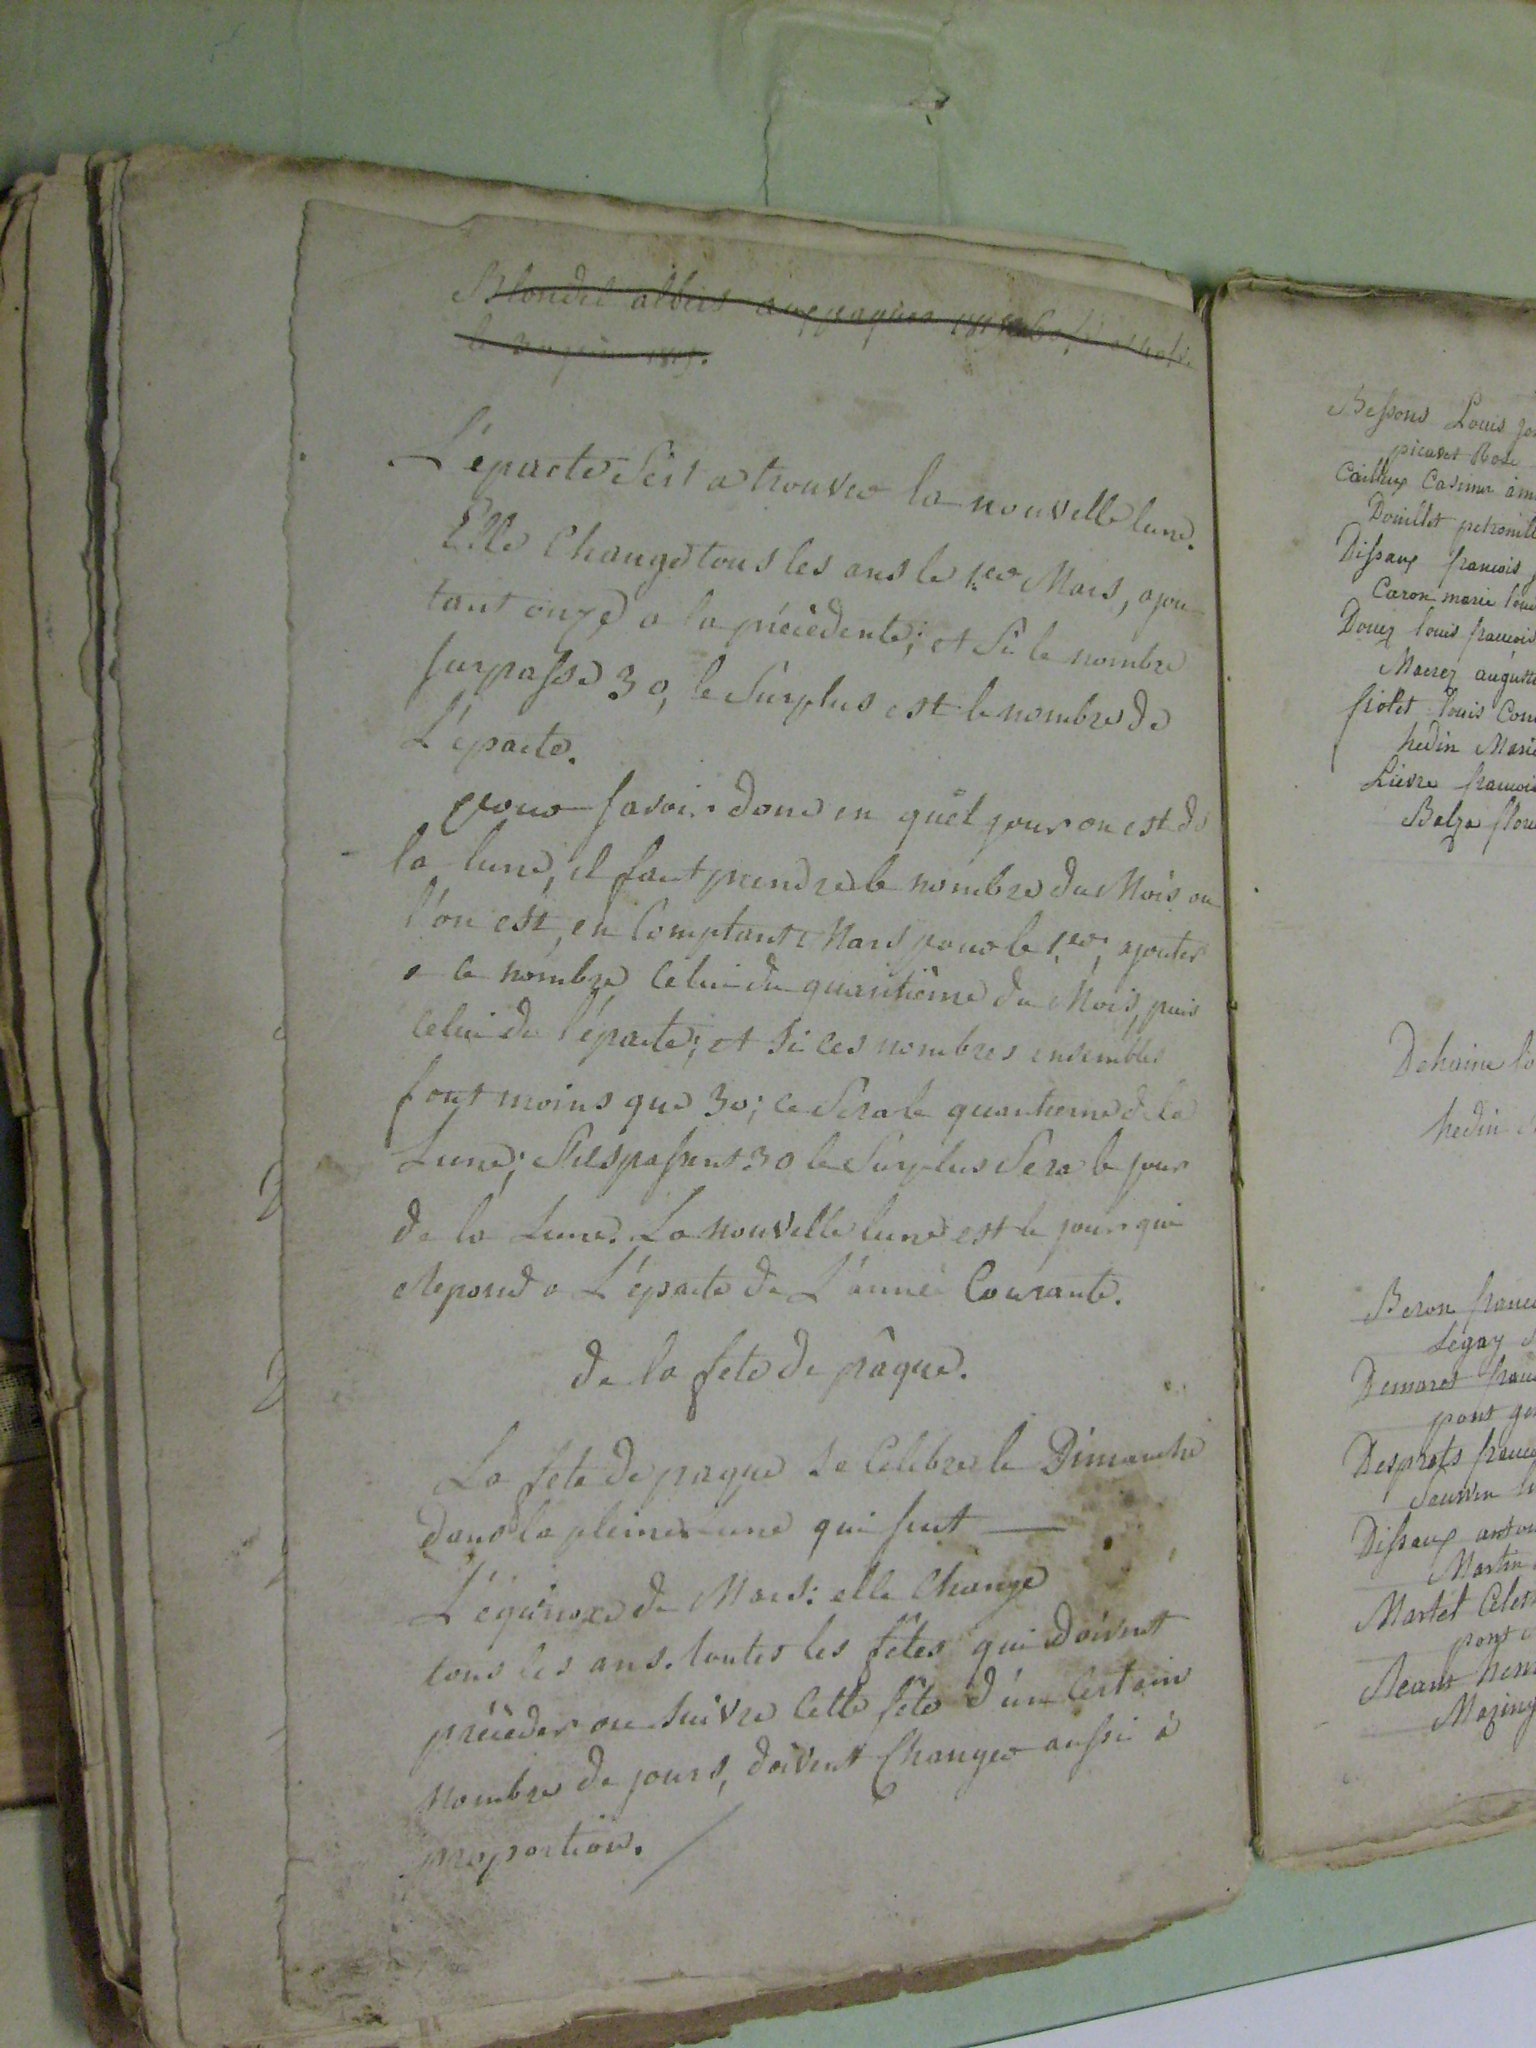 Blondel albers aux paques 181
le 1815.
L'épacte sert a trouver la nouvelle lune.
Elle Change tous les ans le 1.er Mars, ajou-
tant onze a la précédente; et si le nombre
surpasse 30, le surplus est le nombre de
L'épacte.
pour savoir donc en quel jour on est de
la lune, il faut prendre le nombre du Mois ou
l'on est, en Comptant Mars pour le 1.er, ajouter
a ce nombre celui du quantième du Mois, puis
celui de l'épacte; et si ces nombres ensembles
font moins que 30; ce sera le quantieme de la
Lune; s'ils passent 30 le surplus sera le jour
de la Lune. La nouvelle lune est le jour qui
repond a L'épacte de L'année Courante.
de la fete de pâque.
La fete de paque se Celebre le Dimanche
dans la pleine lune qui suit —
L'équinoxe de Mars: elle Change
tous les ans. toutes les fêtes qui doivent
précéder ou suivre cette fête d'un certain
nombre de jours, doivent Changer aussi à
proportion. /
Bessons Louis
picavet Rose
Cailleux Casimir
Douillet petronille
Dissaux francois
Caron marie
Douez louis francois
Maerez auguste
fiolet louis
hedin Marie
Lievre francois
Balza
Dehaine
hedin
Beron
Legay
Demaret
pont
Desprets
Dissaux
Martin
Martel
pont